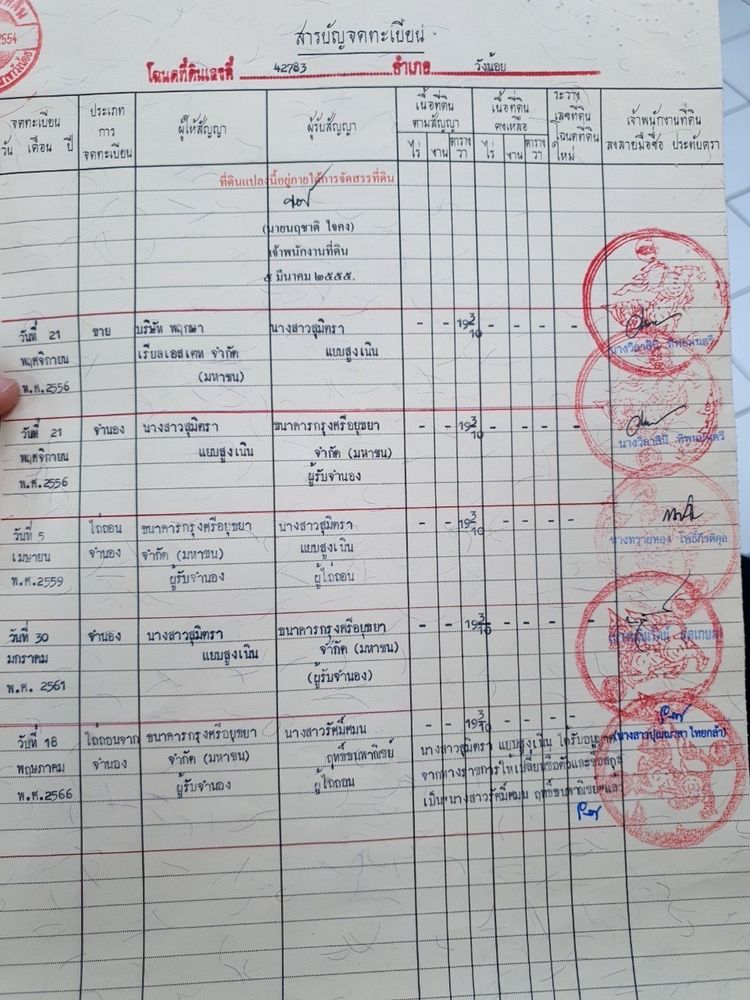 2554
สารบัญจดทะเบียน
โฉนดที่ดินเลขที่ 42783 อำเภอ วังน้อย
จดทะเบียน
วัน เดือน ปี
ประเภท
การ
จดทะเบียน
ผู้ให้สัญญา
ผู้รับสัญญา
เนื้อที่ดิน
ตามสัญญา
ไร่ งาน ตาราง
วา
เนื้อที่ดิน
คงเหลือ
ไร่ งาน ตาราง
วา
ระวาง
เลขที่ดิน
โฉนดที่ดิน
ใหม่
เจ้าพนักงานที่ดิน
ลงลายมือชื่อ ประทับตรา
ที่ดินแปลงนี้อยู่ภายใต้การจัดสรรที่ดิน
(นายนฤชาติ ใจคง)
เจ้าพนักงานที่ดิน
๕ มีนาคม ๒๕๕๕.
วันที่ 21 ขาย บริษัท พฤกษา นางสาวสุมิตรา - - 19 3/10 - - - -
พฤศจิกายน เรียลเอสเตท จำกัด แยบสูงเนิน
พ.ศ.2556 (มหาชน)
วันที่ 21 จำนอง นางสาวสุมิตรา ธนาคารกรุงศรีอยุธยา - - 19 3/10 - - - -
พฤศจิกายน แยบสูงเนิน จำกัด (มหาชน)
พ.ศ.2556 ผู้รับจำนอง
วันที่ 5 ไถ่ถอน ธนาคารกรุงศรีอยุธยา นางสาวสุมิตรา - - 19 3/10 - - - -
เมษายน จำนอง จำกัด (มหาชน) แยบสูงเนิน
พ.ศ.2559 ผู้รับจำนอง ผู้ไถ่ถอน
วันที่ 30 จำนอง นางสาวสุมิตรา ธนาคารกรุงศรีอยุธยา - - 19 3/10 - - - - -
มกราคม แยบสูงเนิน จำกัด (มหาชน)
พ.ศ. 2561 (ผู้รับจำนอง)
วันที่ 18 ไถ่ถอนจาก ธนาคารกรุงศรีอยุธยา นางสาวรัศมิ์คมน - - 19 3/10 - - - -
พฤษภาคม จำนอง จำกัด (มหาชน) ฤทธิ์ธนพาณิชย์
พ.ศ.2566 ผู้รับจำนอง ผู้ไถ่ถอน
นางสาวสุมิตรา แยบสูงเนิน ได้รับอนุญาต
จากทางราชการให้เปลี่ยนชื่อตัวและชื่อสกุล
เป็น"นางสาวรัศมิ์คมน ฤทธิ์ธนพาณิชย์"แล้ว